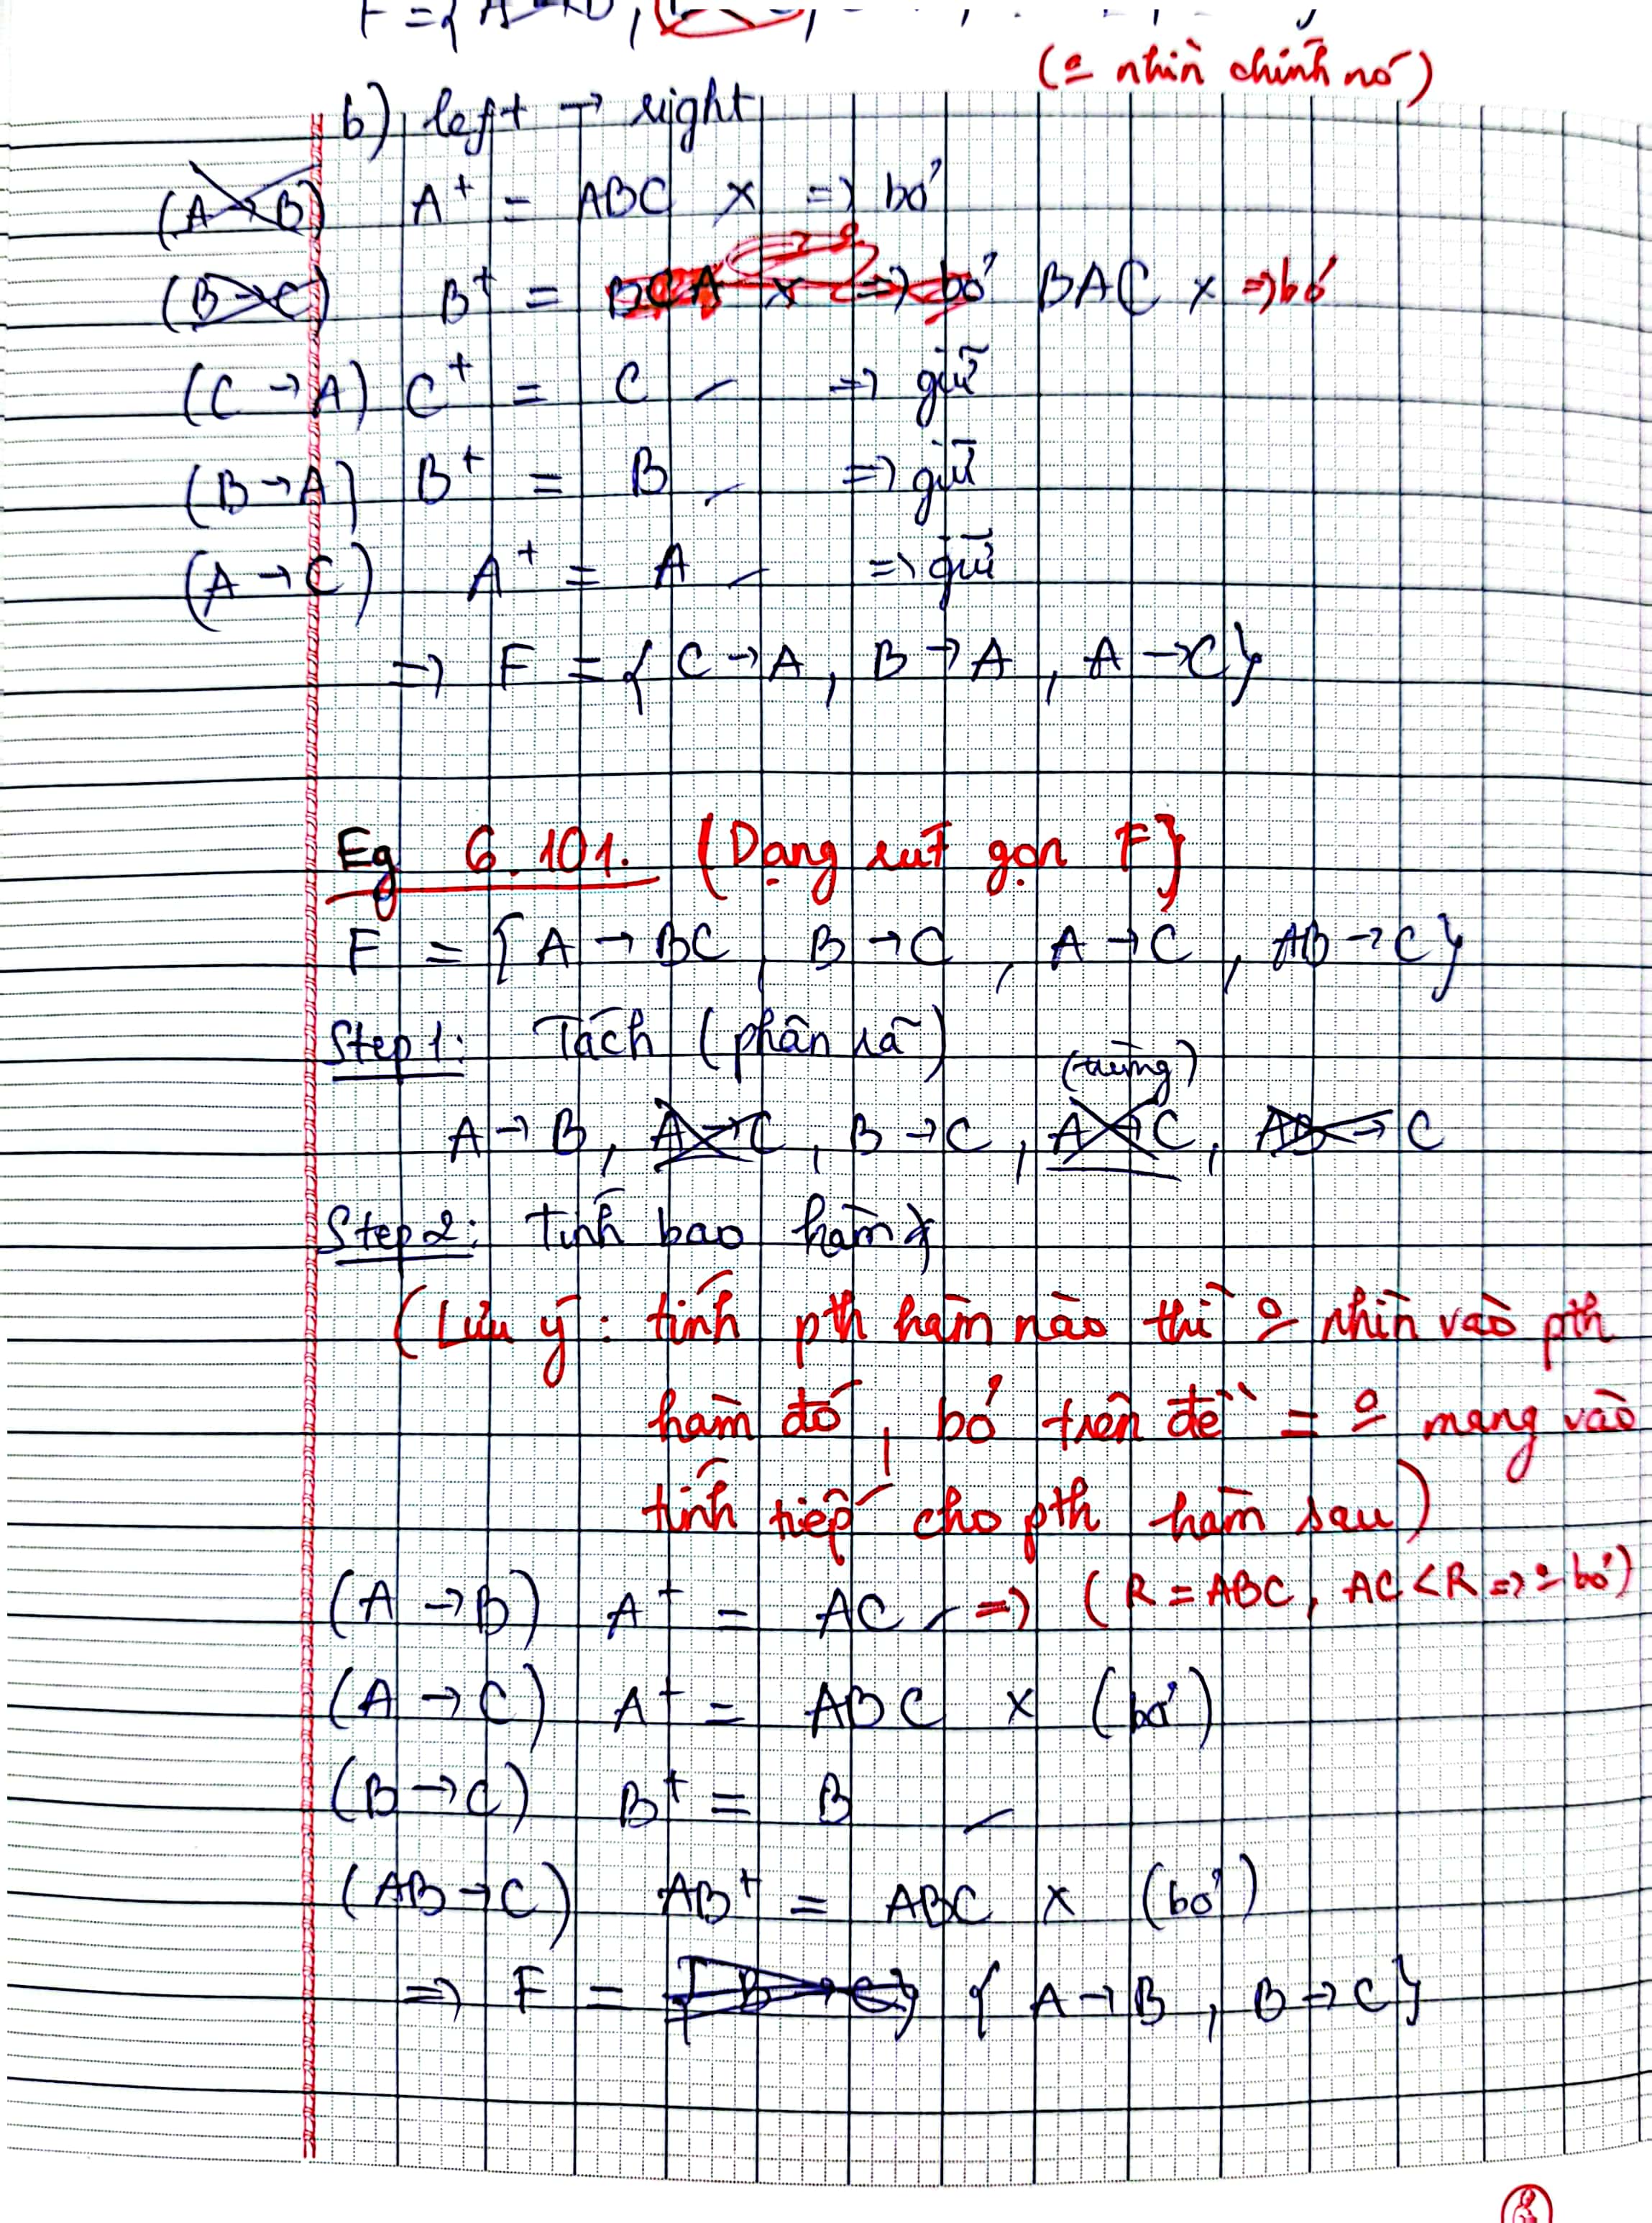 F = {
(º nhìn chính nó)
b) left → right
(A → B) A⁺ = ABC × => bỏ
(B → C) B⁺ = BCA × => bỏ BAC × => bỏ
(C → A) C⁺ = C ✓ => giữ
(B → A) B⁺ = B ✓ => giữ
(A → C) A⁺ = A ✓ => giữ
=> F = { C → A, B → A, A → C}
Eg 6.101. {Dạng rút gọn F}
F = { A → BC, B → C, A → C, AB → C}
Step 1: Tách (phân rã)
(trùng)
A → B, A → C, B → C, A → C, AB → C
Step 2: Tính bao hàm
(Lưu ý: tính pth hàm nào thì º nhìn vào pth
hàm đó, bỏ trên đề = º mang vào
tính tiếp cho pth hàm sau)
(A → B) A⁺ = AC ✓ => (R = ABC, AC < R => º bỏ)
(A → C) A⁺ = ABC × (bỏ)
(B → C) B⁺ = B ✓
(AB → C) AB⁺ = ABC × (bỏ)
=> F = { B → C} { A → B, B → C}